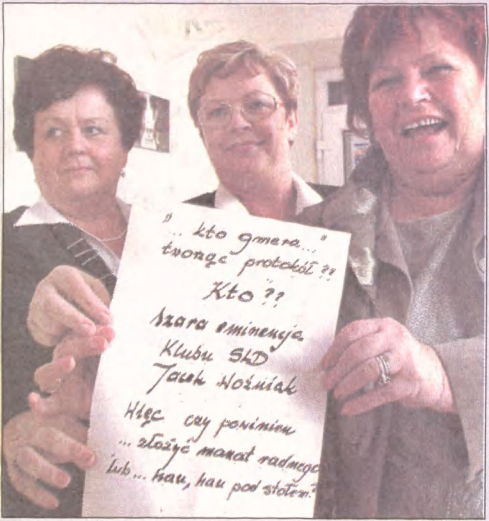 "... kto gmera..."
tworząc protokół ??
Kto ??
Szara eminencja
Klubu SLD
Jacek Woźniak
Więc czy powinien
... złożyć manat radnego
lub... hau, hau pod stołem?